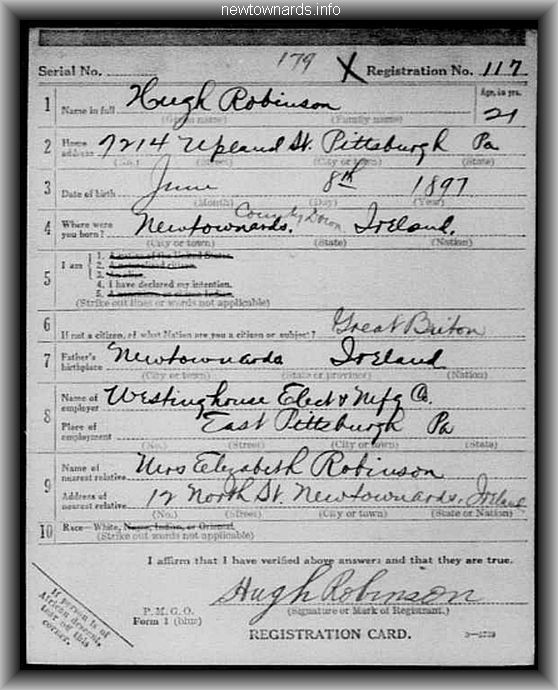 newtownards.info
179 X
Serial No. Registration No. 117
1 Name in full Hugh Robinson Age, in yrs. 21
(Given name) (Family name)
2 Home address 7214 Upland St. Pittsburgh Pa
(No.) (Street) (City or town) (State)
3 Date of birth June 8th 1897
(Month) (Day) (Year)
4 Where were you born? Newtownards. County Down Ireland.
(City or town) (State) (Nation)
5 I am
1. A native of the United States.
2. A naturalized citizen.
3. An alien.
4. I have declared my intention.
5. A noncitizen or citizen Indian.
(Strike out lines or words not applicable)
6 If not a citizen, of what Nation are you a citizen or subject? Great Briton
7 Father's birthplace Newtownards Ireland
(City or town) (State or province) (Nation)
8 Name of employer Westinghouse Elect & Mfg Co.
Place of employment East Pittsburgh Pa
(No.) (Street) (City or town) (State)
9 Name of nearest relative Mrs Elizabeth Robinson
Address of nearest relative 12 North St. Newtownards, Ireland
(No.) (Street) (City or town) (State or Nation)
10 Race—White, Negro, Indian, or Oriental.
(Strike out words not applicable)
I affirm that I have verified above answers and that they are true.
Hugh Robinson
P.M.G.O. (Signature or Mark of Registrant.)
Form 1 (blue)
REGISTRATION CARD.
If person is of
African descent,
tear off this
corner.